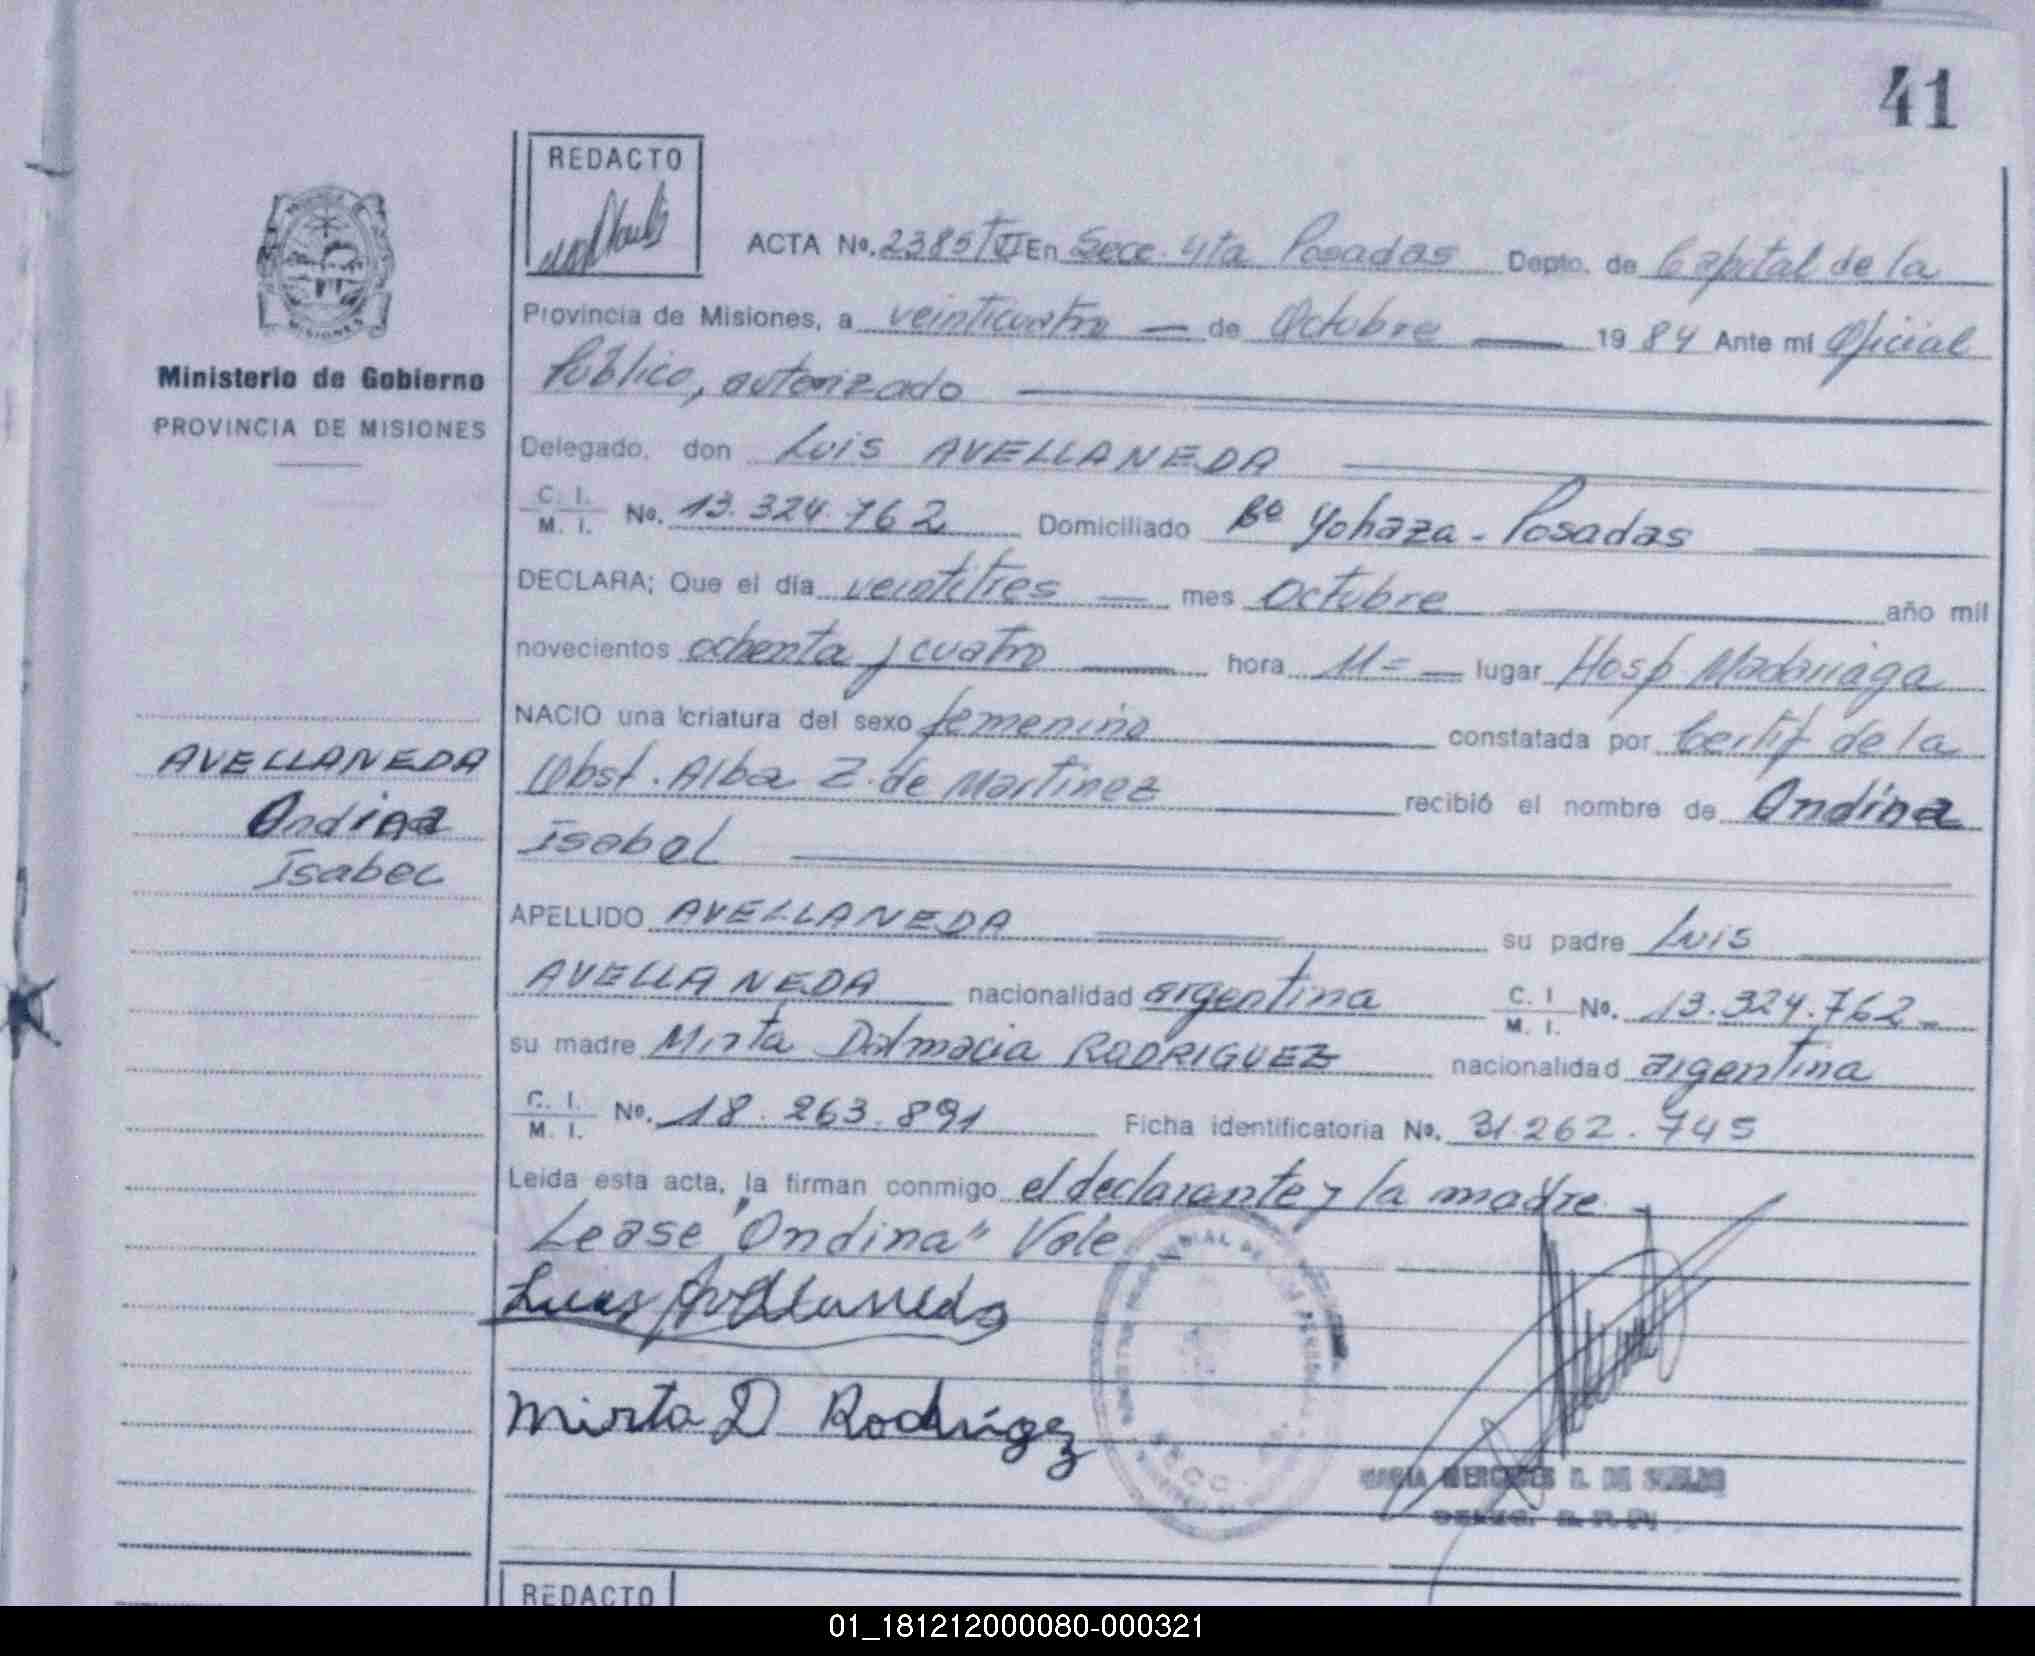 41
REDACTO
ACTA No. 2385/VI En Secc. 4ta Posadas Depto. de Capital de la
Provincia de Misiones, a veinticuatro — de Octubre — 19 84 Ante mi Oficial
Público, autorizado
Ministerio de Gobierno
PROVINCIA DE MISIONES
Delegado, don Luis AVELLANEDA
C. I. M. I. No. 13.324.762 Domiciliado Bº Yohaza - Posadas
DECLARA; Que el día veintitres — mes Octubre año mil
novecientos ochenta y cuatro — hora 11= — lugar Hosp. Madariaga
NACIO una criatura del sexo femenino constatada por Certif de la
Obst. Alba Z. de Martinez recibió el nombre de Ondina
Isabel
AVELLANEDA
Ondina
Isabel
APELLIDO AVELLANEDA su padre Luis
AVELLANEDA nacionalidad argentina C. I. M. I. No. 13.324.762-
su madre Mirta Dalmacia RODRIGUEZ nacionalidad argentina
C. I. M. I. No. 18.263.891 Ficha identificatoria No. 31.262.745
Leída esta acta, la firman conmigo el declarante y la madre
Lease "Ondina" Vale
Luis Avellaneda
Mirta D Rodrígez
SECC.
MARIA MERCEDES
REDACTO
01_181212000080-000321